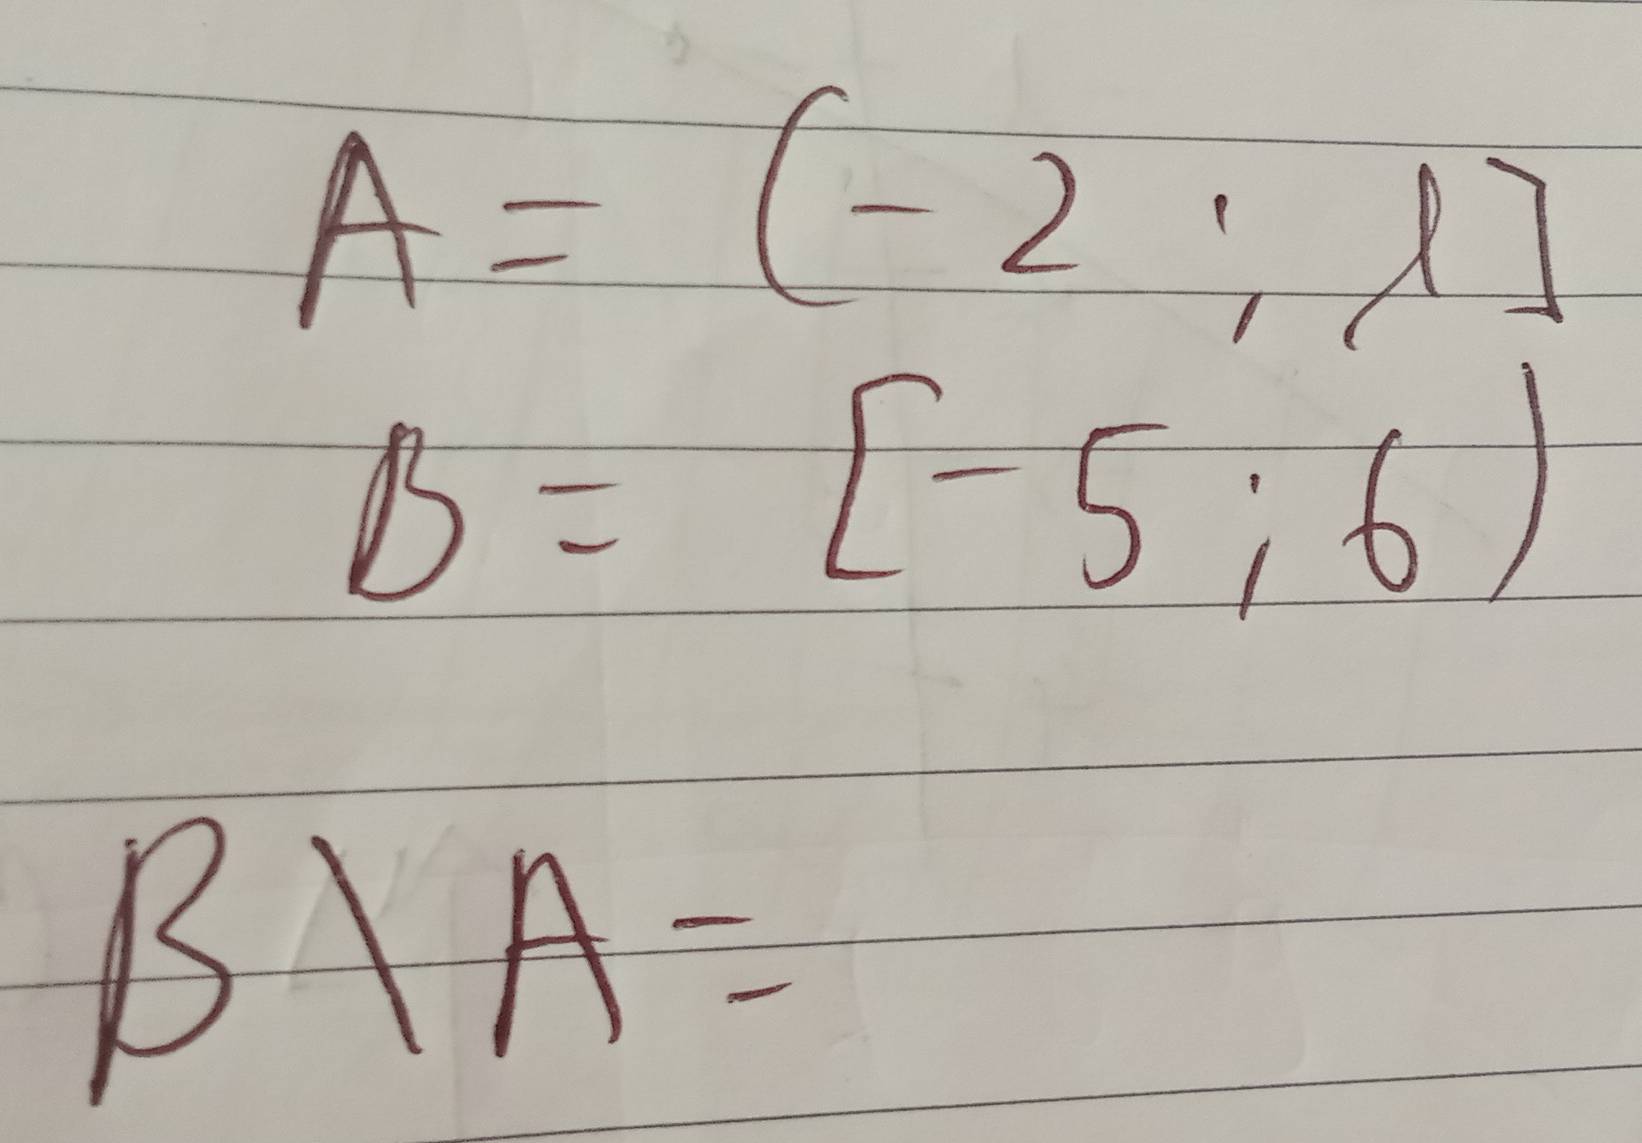 A = (-2 ; 1]
B = [-5 ; 6)
B \ A =